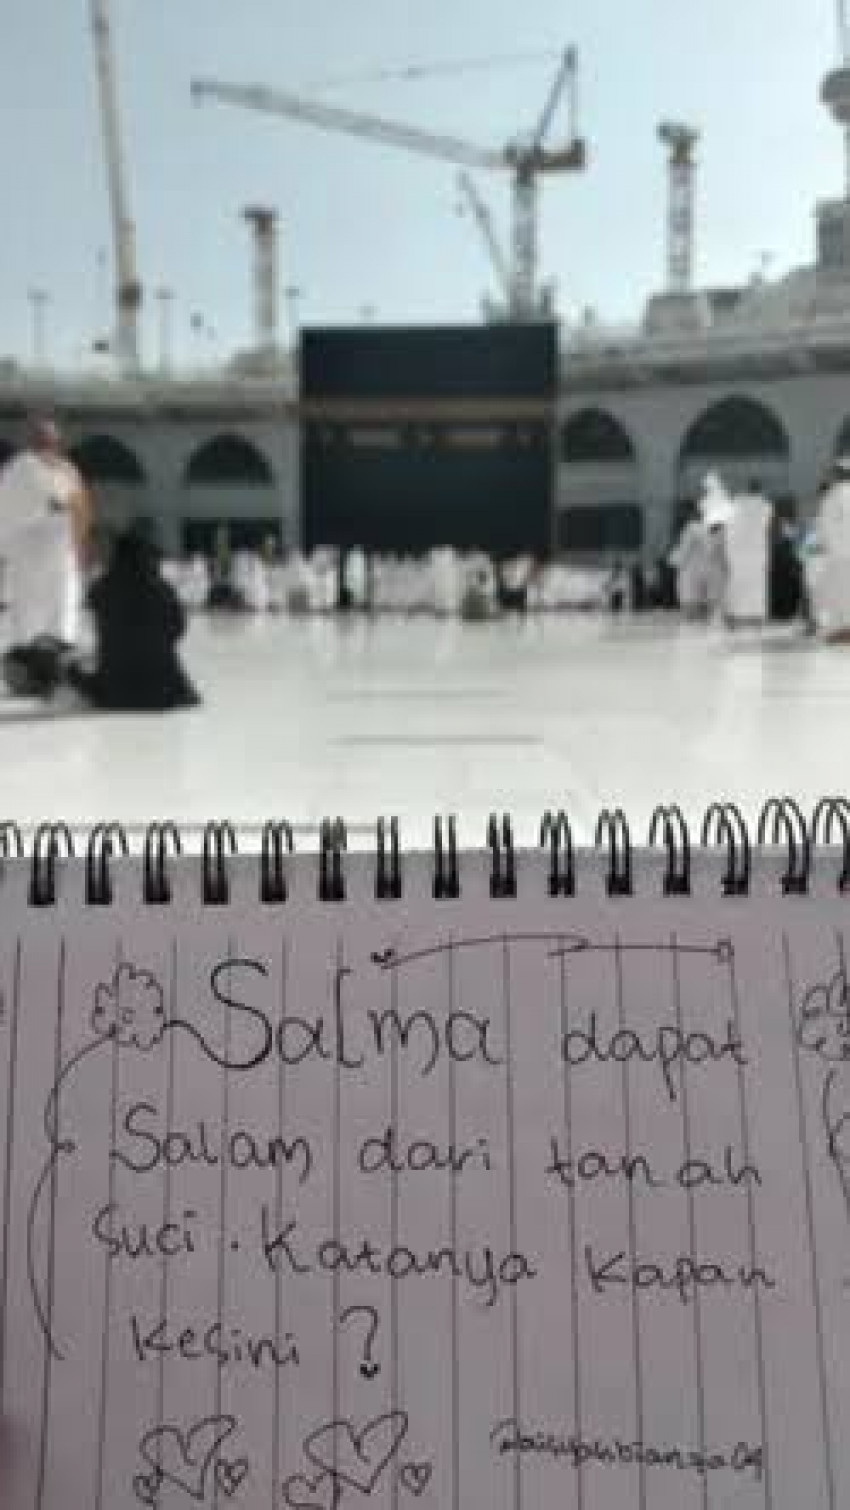 Salma dapat
Salam dari tanah
suci. Katanya kapan
kesini?